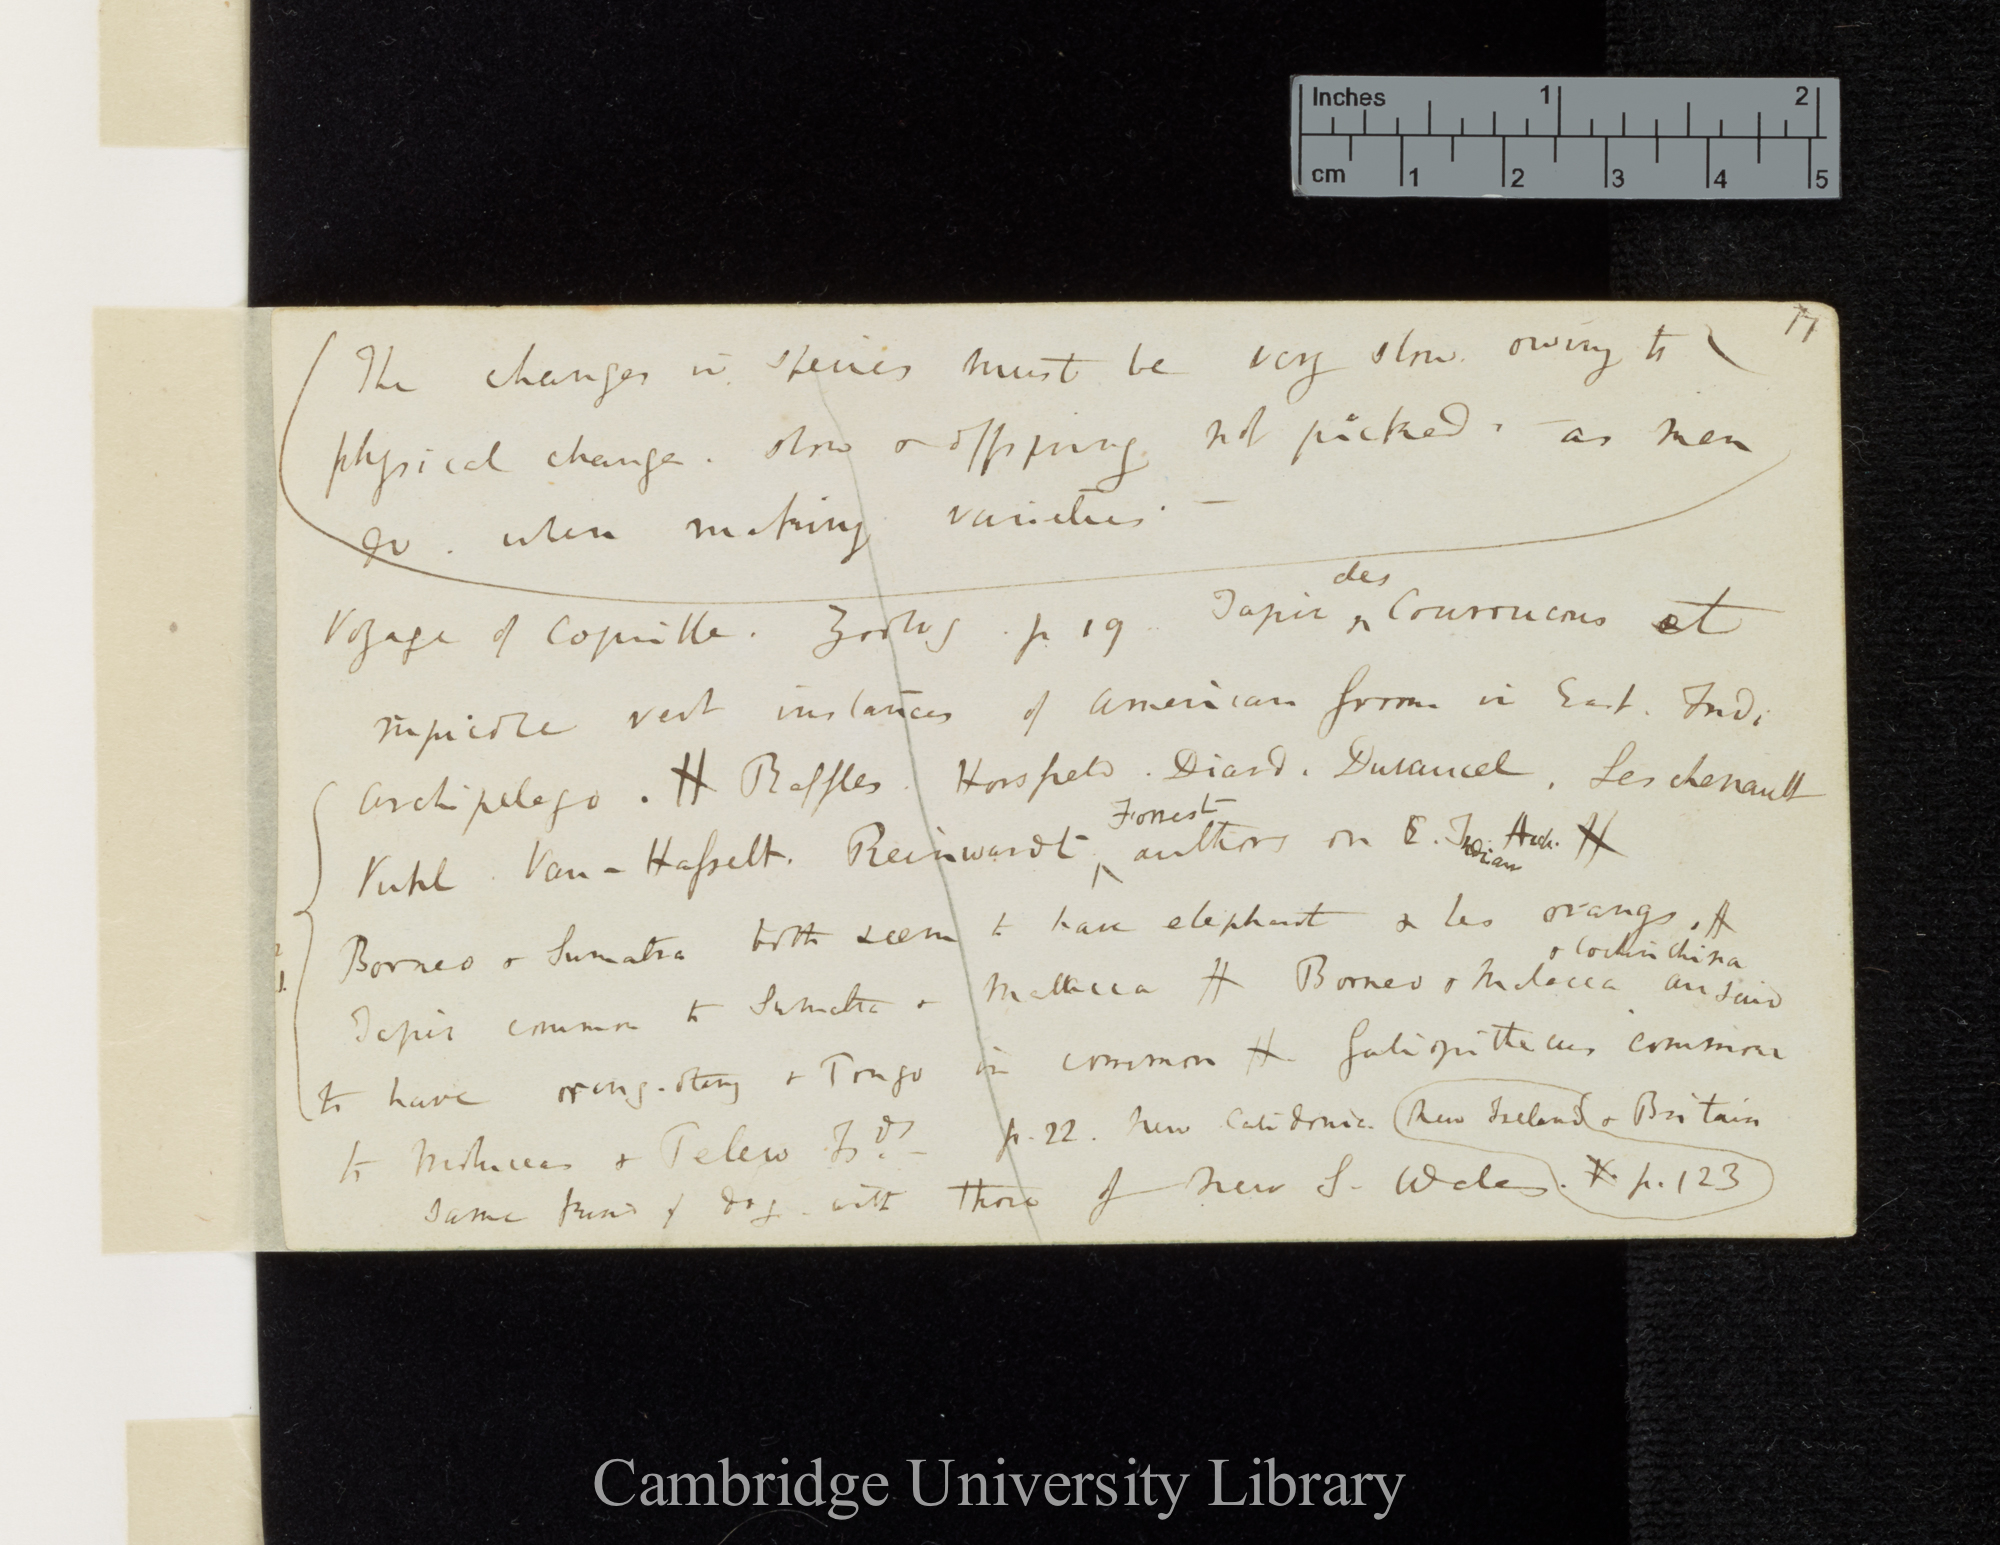 Inches 1 2
cm 1 2 3 4 5
17
The changes in species must be very slow. owing to
physical change. slow & offspring not picked. — as men
do. when making varieties. —
des
Voyage of Coquille. Zoolog. p. 19. Tapir ^ Couroucous et
rupicole vert instances of American form in East. Indi
Archipelago. # Raffles. Horsfield. Diard. Duvaucel, Leschenault
Forrest
Kuhl. Van-Hasselt. Reinwardt ^ authors on E. Indian Arch. #
Borneo & Sumatra both seem to have elephant & les orangs. #
& Cochin china
Tapir common to Sumatra & Malacca # Borneo & Malacca are said
to have orang-otang & Pongo in common # Galiopithecus common
to Moluccas & Pelew Isds. — p. 22. New Calidonia. New Ireland & Britain
same kind of dog with those of New S. Wales. p. 123
Cambridge University Library